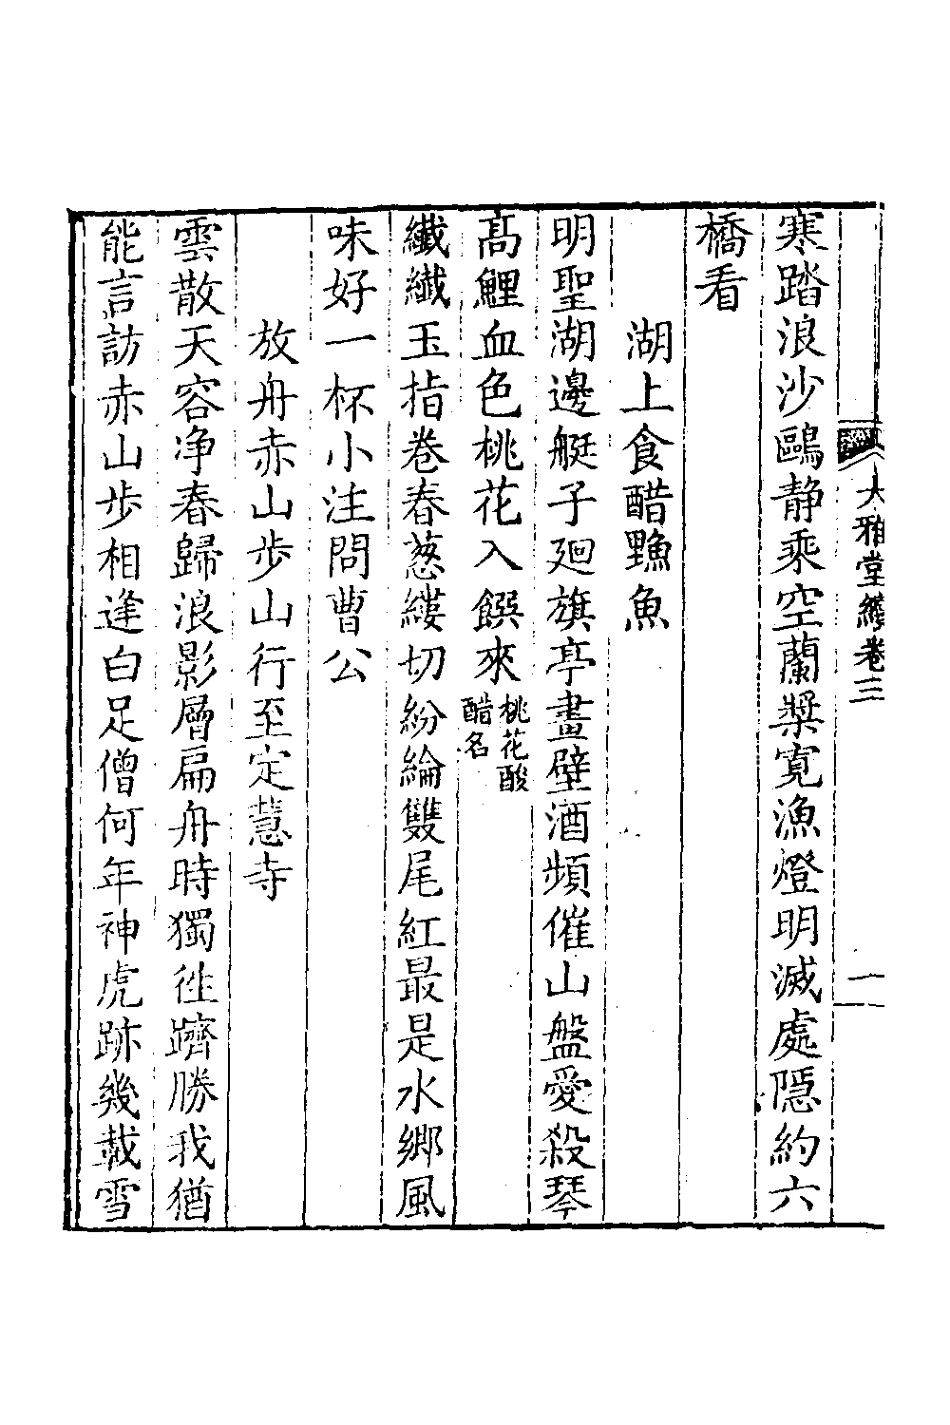 大雅堂續卷三
一
寒踏浪沙鷗静乘空蘭槳寛漁燈明滅處隠約六
橋看
湖上食醋魚
明聖湖邊艇子廻旗亭畫壁酒頻催山盤愛殺琴
髙鯉血色桃花入饌來桃花酸
醋名
纎纎玉指巻春葱縷切紛綸雙尾紅最是水鄉風
味好一杯小注問曹公
放舟赤山步山行至定慧寺
雲散天容净春歸浪影層扁舟時獨徃躋勝我猶
能言訪赤山步相逢白足僧何年神虎跡幾載雪